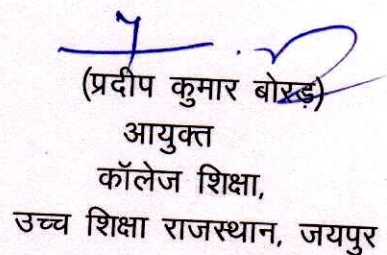 (प्रदीप कुमार बोरड़)
आयुक्त
कॉलेज शिक्षा,
उच्च शिक्षा राजस्थान, जयपुर